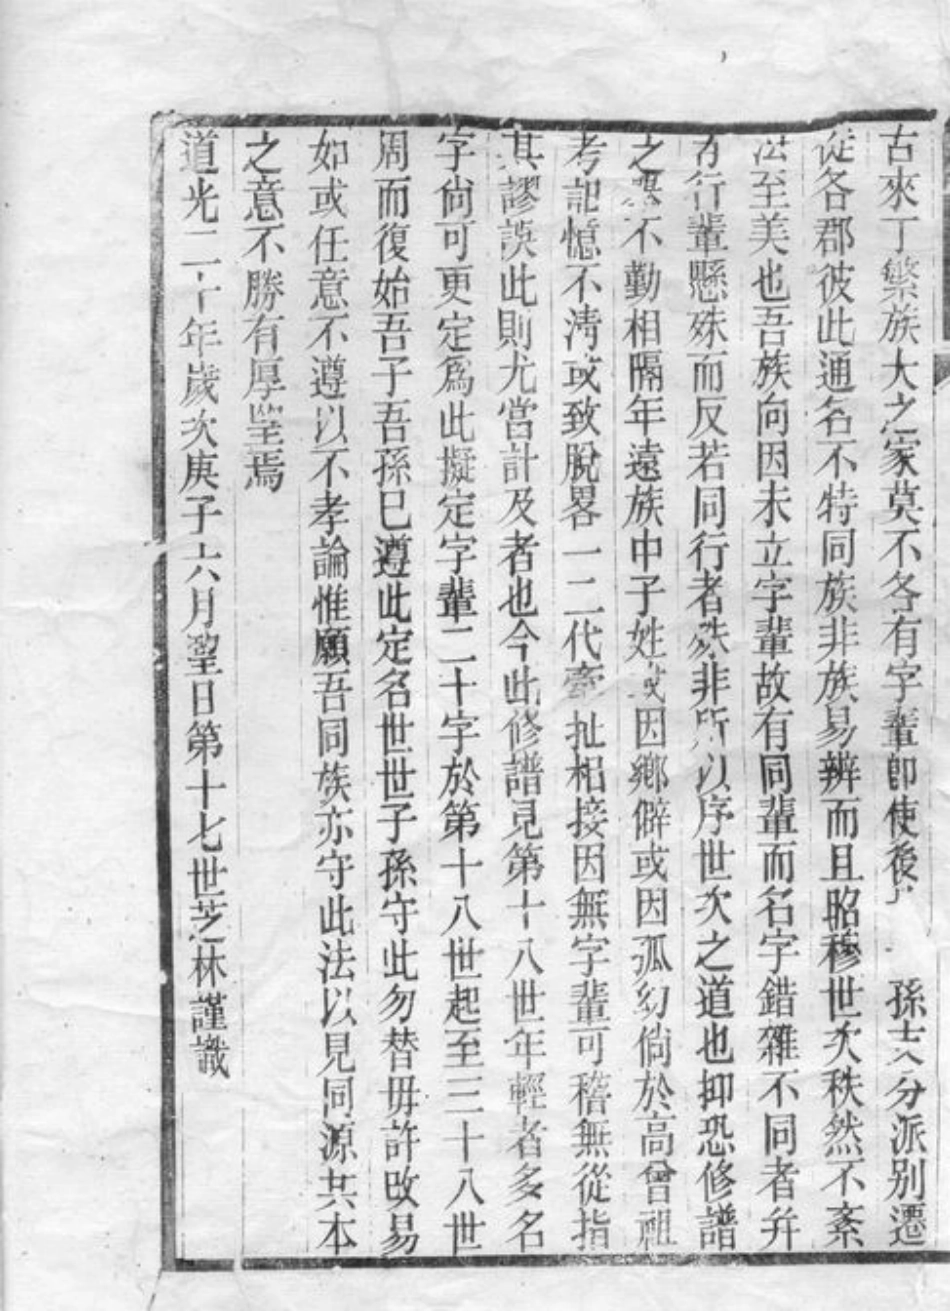 古來丁繁族大之家莫不各有字輩卽使後 孫支分派别遷
從各郡彼此通名不特同族非族易辨而且昭穆世次秩然不紊
法至美也吾族向因未立字輩故有同輩而名字錯雜不同者弁
有行輩懸殊而反若同行者殊非所以序世次之道也抑恐修譜
之 不勤相隔年遠族中子姓或因鄉僻或因孤幻倘於高曾祖
考記憶不淸或致脫畧一二代牽扯相接因無字輩可稽無從指
其謬誤此則尤當計及者也今此修譜見第十八世年輕者多名
字尙可更定爲此擬定字輩二十字於第十八世起至三十八世
周而復始吾子吾孫巳遵此定名世世子孫守此勿替毋許改易
如或任意不遵以不孝論惟願吾同族亦守此法以見同源共本
之意不勝有厚望焉
道光二十年歲次庚子六月望日第十七世芝林謹識